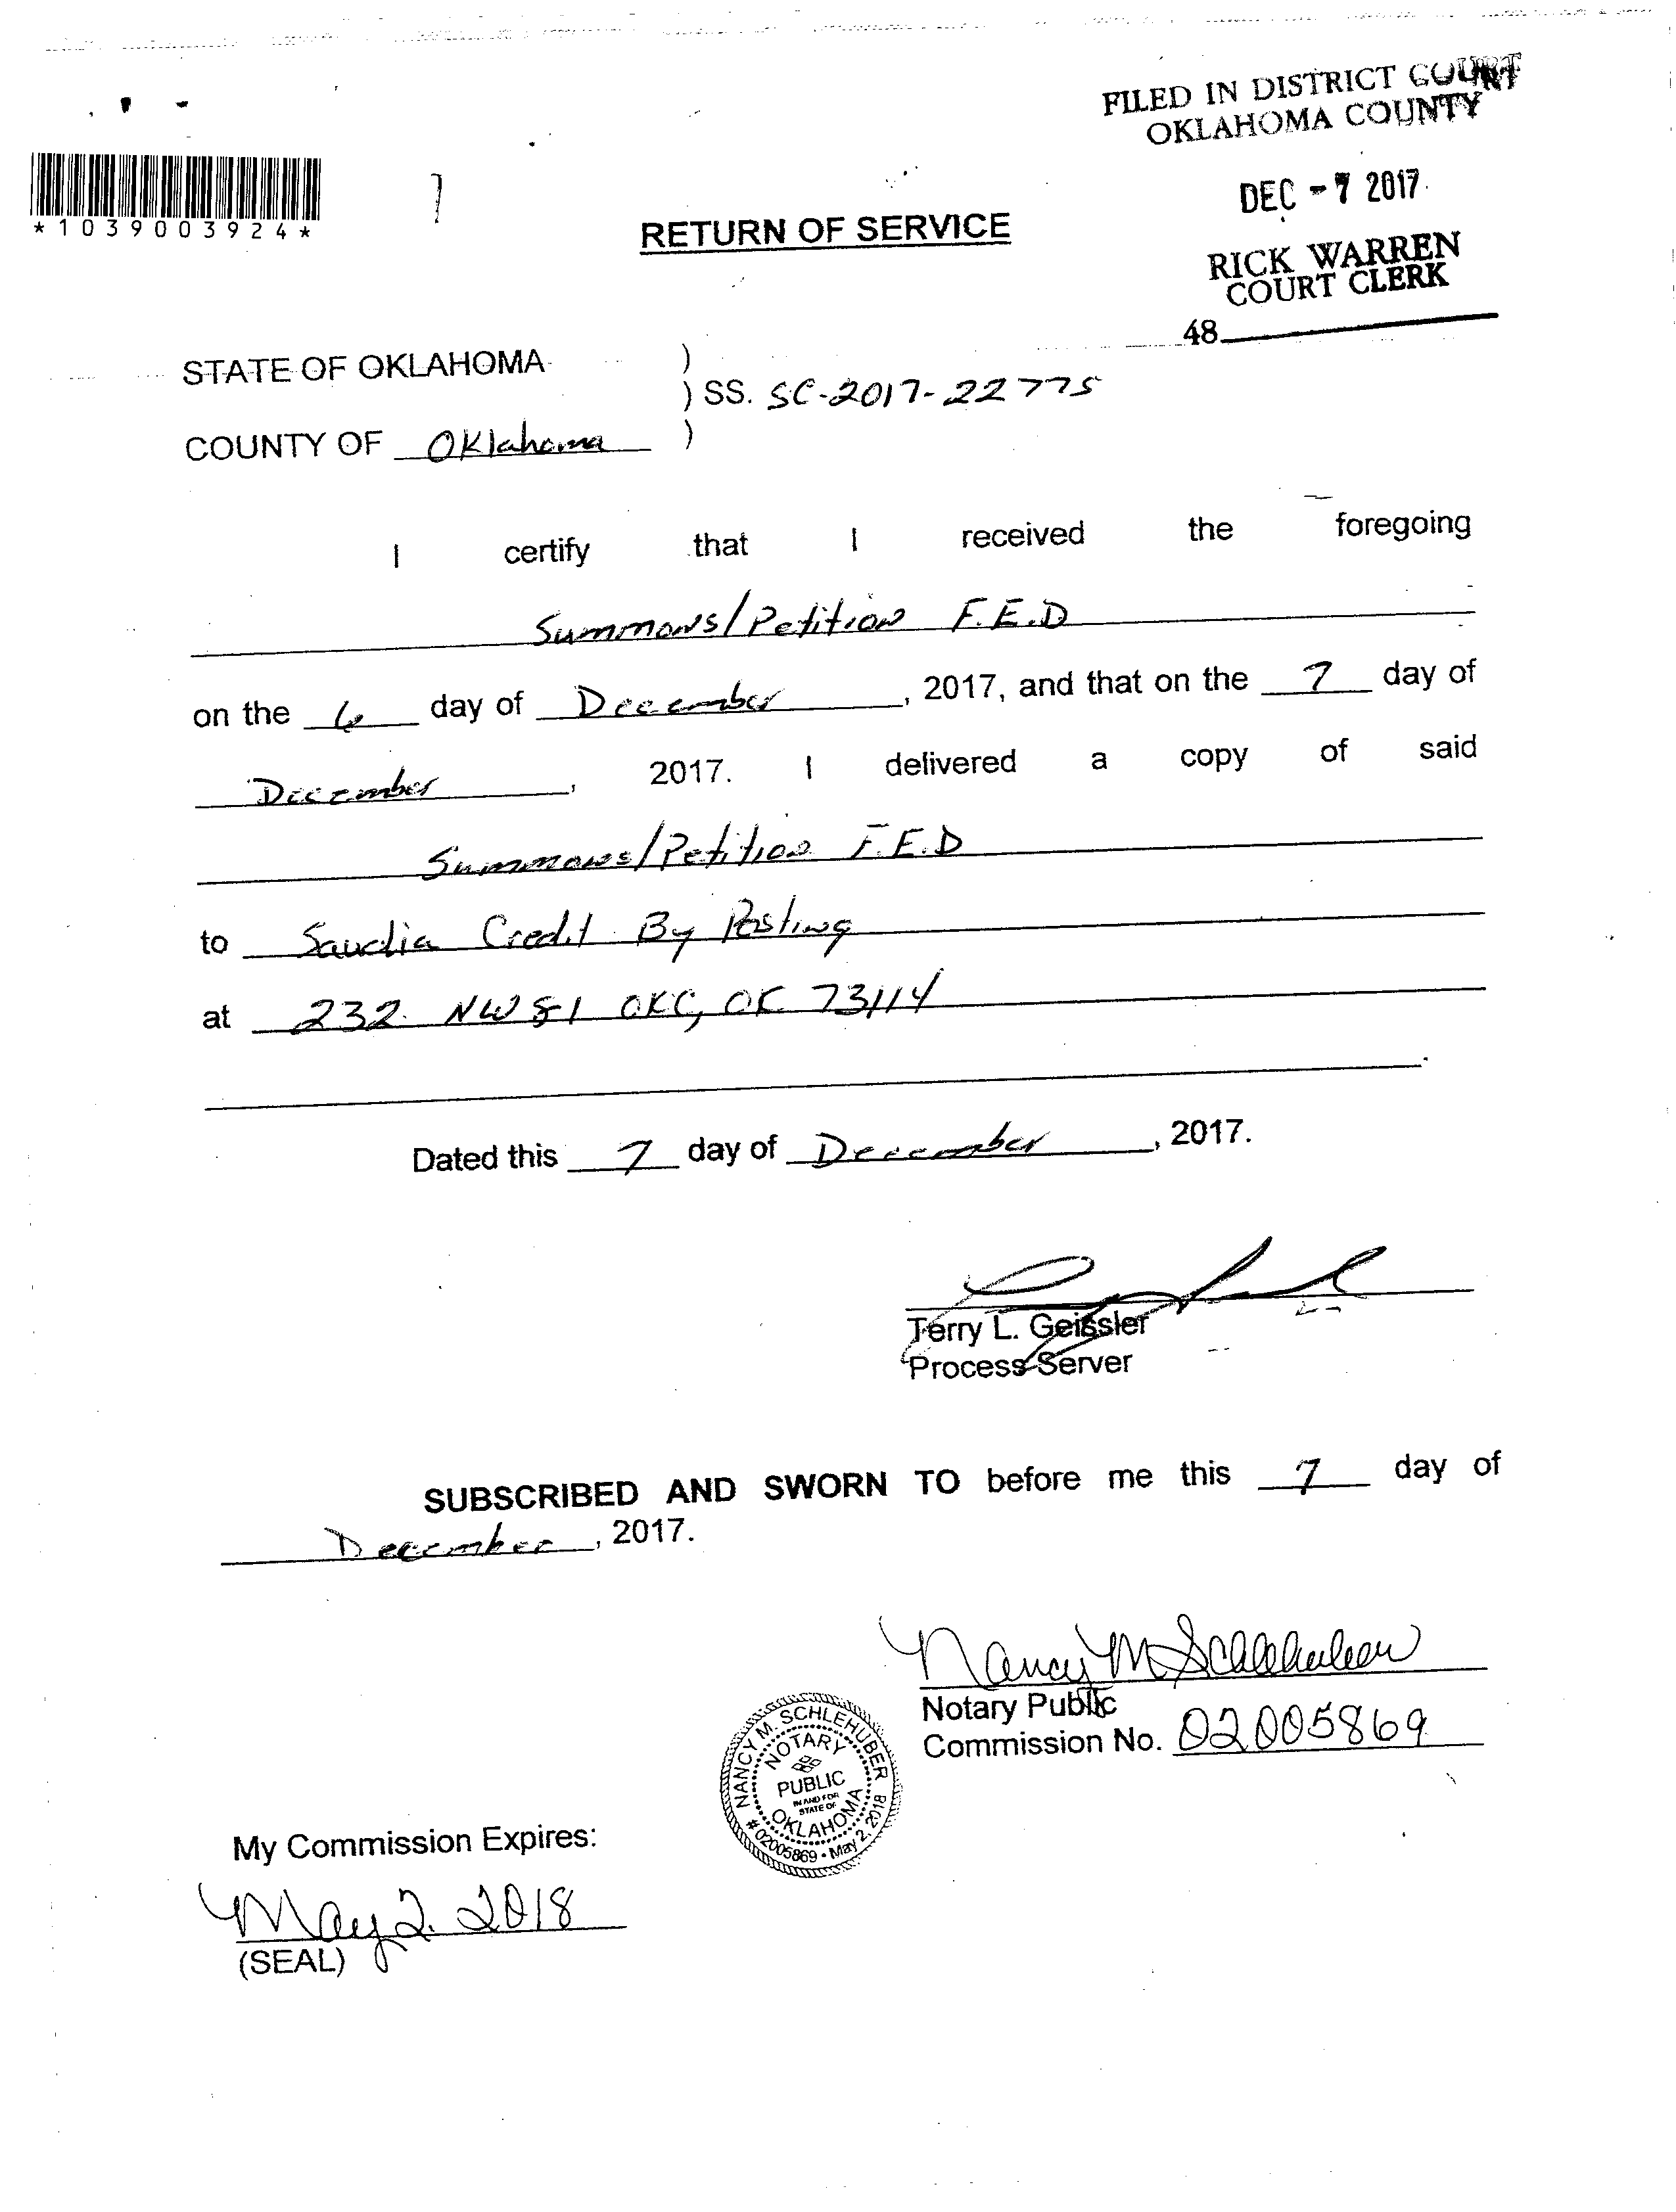 FILED IN DISTRICT COURT
OKLAHOMA COUNTY
DEC - 7 2017
RICK WARREN
COURT CLERK
48
*1039003924*
RETURN OF SERVICE
STATE OF OKLAHOMA )
) SS. SC-2017-22775
COUNTY OF Oklahoma )
I certify that I received the foregoing
Summons/Petition F.E.D
on the 6 day of December, 2017, and that on the 7 day of
December, 2017. I delivered a copy of said
Summons/Petition F.E.D
to Saudia Credit By Posting
at 232 NW 81 OKC, OK 73114
Dated this 7 day of December, 2017.
Terry L. Geissler
Process Server
SUBSCRIBED AND SWORN TO before me this 7 day of
December, 2017.
Nancy M Schlehuber
Notary Public
Commission No. 02005869
NANCY M. SCHLEHUBER
NOTARY
PUBLIC
IN AND FOR
STATE OF
OKLAHOMA
# 02005869 • May 2, 2018
My Commission Expires:
May 2. 2018
(SEAL)